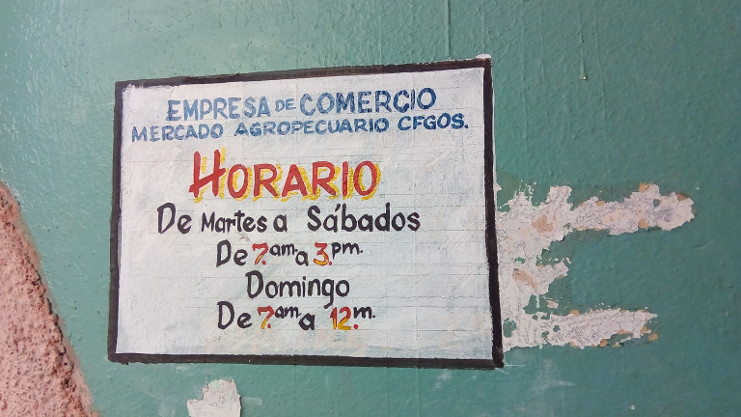 EMPRESA DE COMERCIO
MERCADO AGROPECUARIO CFGOS.
HORARIO
De Martes a Sábados
De 7.am. a 3.pm.
Domingo
De 7.am a 12.m.